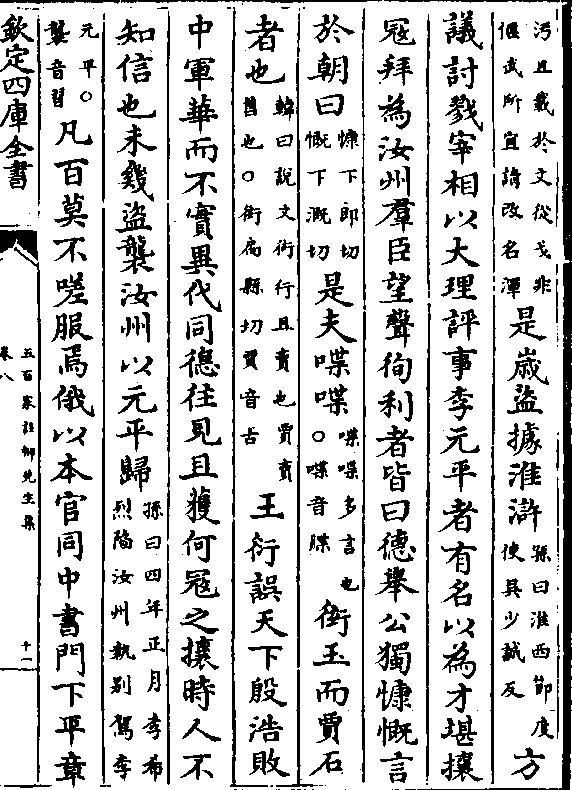 汚且載於文從戈非
偃武所宜請改名渾
是歲盜據淮滸
孫曰淮西節度
使吳少誠反
方
議討戮宰相以大理評事李元平者有名以為才堪攘
冦拜為汝州羣臣望聲徇利者皆曰德舉公獨慷慨言
於朝曰
慷下郎切
慨下溉切
是夫喋喋
喋喋多言也
○喋音牒
衒玉而賈石
者也
韓曰說文衒行且賣也賈賣
舊也○衒扃縣切賈音古
王衍誤天下殷浩敗
中軍華而不實異代同德往見且獲何冦之攘時人不
知信也未幾盜襲汝州以元平歸
孫曰四年正月李希
烈陷汝州執别駕李
元平○
襲音習
凡百莫不嗟服焉俄以本官同中書門下平章
欽定四庫全書
五百家註柳先生集
卷八
十一